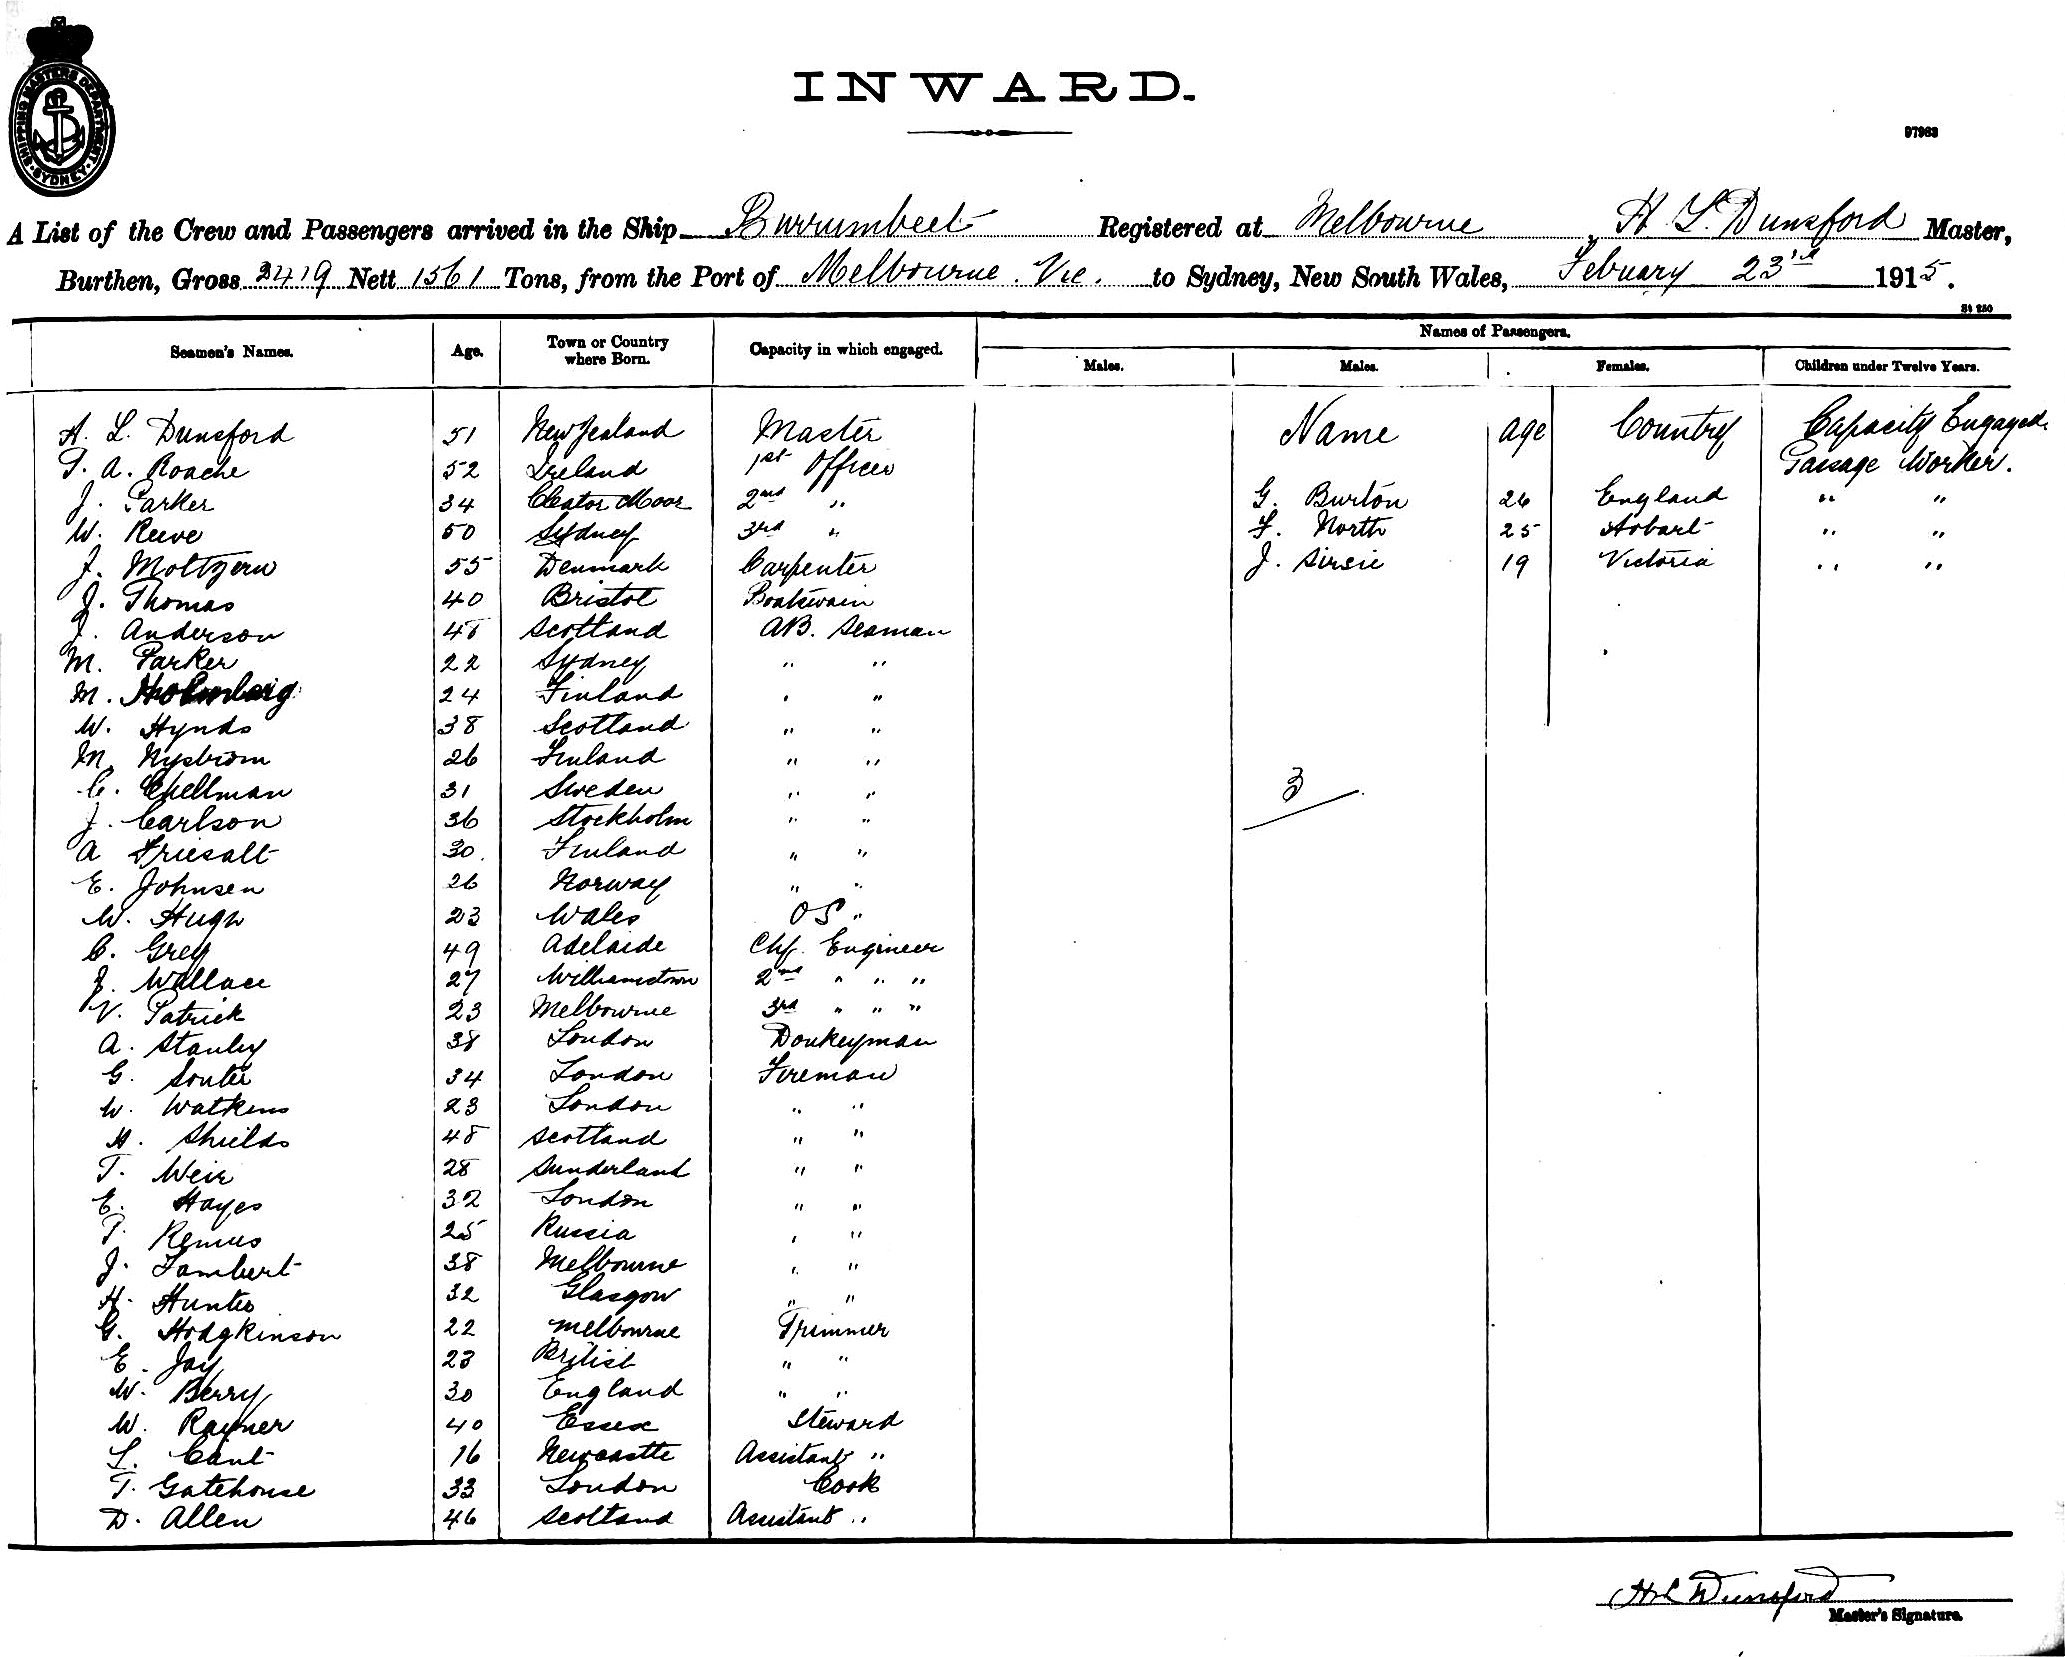 SHIPPING MASTERS DEPARTMENT
SYDNEY
INWARD.
97983
A List of the Crew and Passengers arrived in the Ship Burrumbeet Registered at Melbourne, H. L. Dunsford Master,
Burthen, Gross 2419 Nett 1561 Tons, from the Port of Melbourne. Vic. to Sydney, New South Wales, Febuary 23rd 1915.
St 250
Seamen's Names. Age. Town or Country where Born. Capacity in which engaged. Names of Passengers.
Males. Males. Females. Children under Twelve Years.
A. L. Dunsford 51 New Zealand Master Name age Country Capacity Engaged.
P. A. Roache 52 Ireland 1st Officer Passage Worker.
J. Parker 34 Cleator Moor 2nd " G. Burton 26 England " "
W. Reeve 50 Sydney 3rd " F. North 25 Hobart " "
J. Moltzen 55 Denmark Carpenter J. Sirsie 19 Victoria " "
J. Thomas 40 Bristol Boatswain
J. Anderson 48 Scotland AB. Seaman
M. Parker 22 Sydney " "
M. 24 Finland " "
W. Hynds 38 Scotland " "
M. Nystrom 26 Finland " "
C. Chellman 31 Sweden " "
3
J. Carlson 36 Stockholm " "
A Friesalt 30. Finland " "
E. Johnsen 26 Norway " "
W. Hugh 23 Wales OS "
C. Grey 49 Adelaide Chf. Engineer
J. Wallace 27 Williamstown 2nd " " "
V. Patrick 23 Melbourne 3rd " " "
A. Stanley 38 London Donkeyman
G. Souter 34 London Fireman
W. Watkins 23 London " "
H. Shields 48 Scotland " "
T. Weir 28 Sunderland " "
E. Hayes 32 London " "
P. Remus 25 Russia " "
J. Lambert 38 Melbourne " "
H. Hunter 32 Glasgow " "
G. Hodgkinson 22 Melbourne Trimmer
E. Jay 23 British " "
W. Berry 30 England " "
W. Rayner 40 Essex Steward
L. Cant 16 Newcastle Assistant "
T. Gatehouse 33 London Cook
D. Allen 46 Scotland Assistant "
H L Dunsford
Master's Signature.